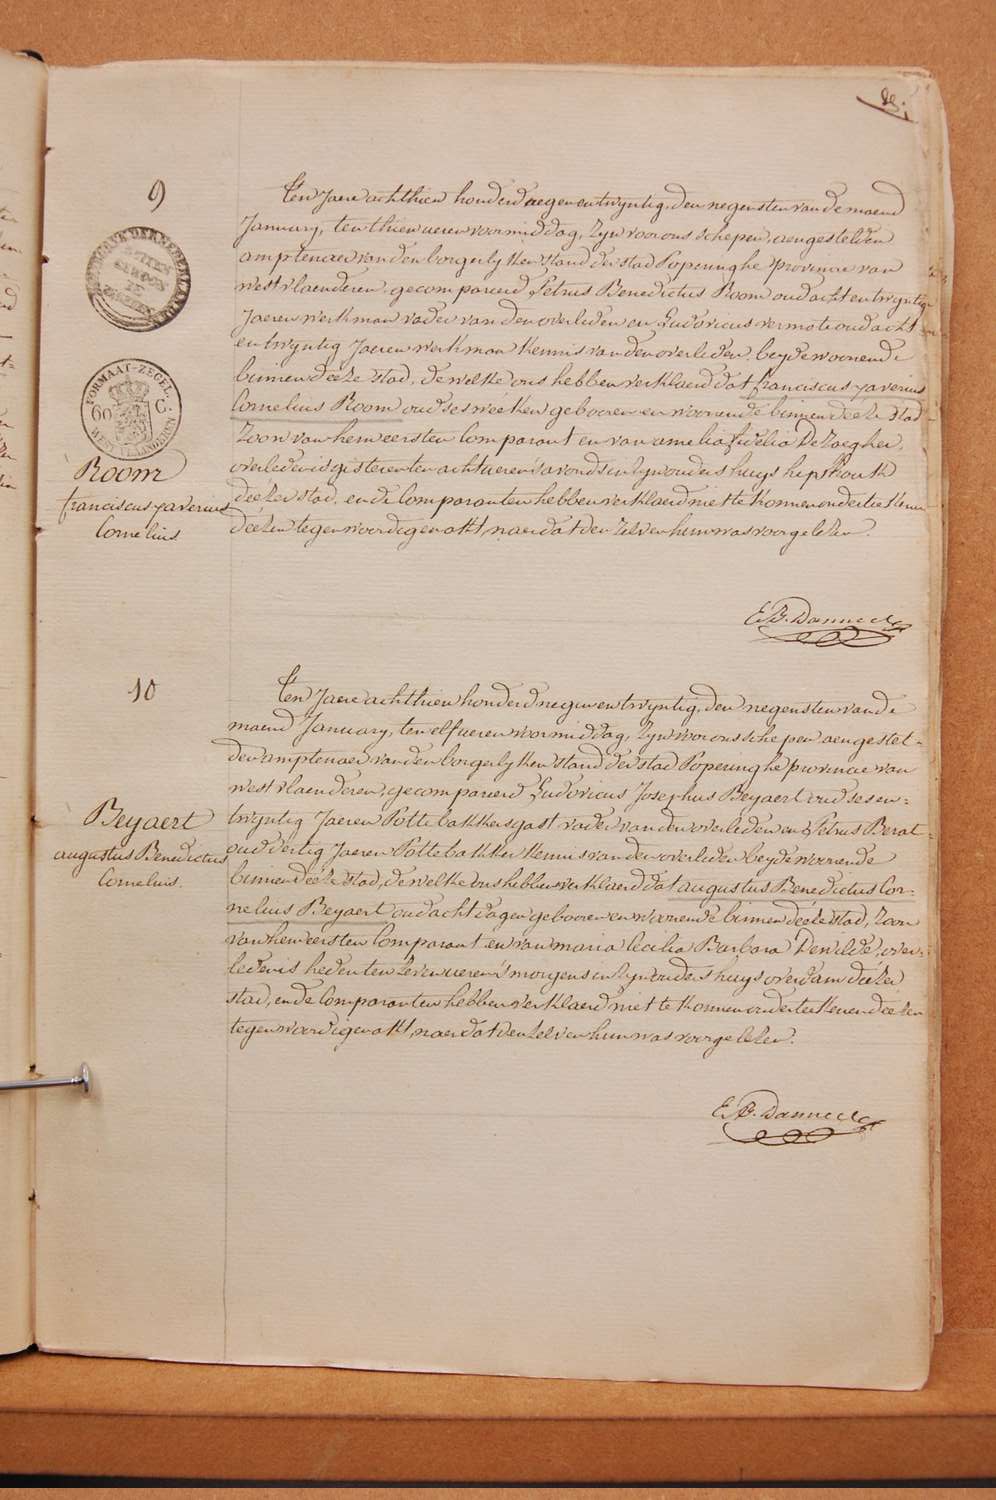 9
Ten Jaere achthien honderd negen en twyntig, den negensten van de maend
January, ten thien ueren voormiddag, zyn voor ons schepen, aengestelden
amptenaer van den borgerlyken stand der stad Poperinghe provincie van
westvlaenderen, gecompareerd Petrus Benedictus Room oud acht en twyntig
Jaeren werkman vader van den overleden en Ludovicus vermote oud acht
en twyntig Jaeren werkman kennis van den overleden, beyde woonende
binnen deeze stad, de welke ons hebben verklaerd dat franciscus xaverius
Cornelius Room oud ses weeken gebooren en woonende binnen deeze stad
Zoon van hem eersten Comparant en van amelia fidelia De Zaegher,
overleden is gisteren ten acht ueren s'avonds in zyn ouders huys hipshouk
deezer stad, en de Comparanten hebben verklaerd niet te konnen onderteekenen
deezen tegenwoordigen akt, naer dat den zelven hun was voorgelezen.
FORMAAT-ZEGEL
60 C.
WEST VLAANDEREN
Room
franciscus xaverius
Cornelius
E. B. Danneel
10
Ten Jaere achthien honderd negen en twyntig, den negensten van de
maend January, ten elf ueren voormiddag, zyn voor ons schepen aengestel-
den amptenaer van den borgerlyken stand der stad Poperinghe provincie van
westvlaenderen, gecompareerd Ludovicus Josephus Beyaert oud ses en
twyntig Jaeren Pottebakkersgast vader van den overleden en Petrus Berat
oud dertig Jaeren Pottebakker kennis van den overleden beyde woonende
binnen deeze stad, de welke ons hebben verklaerd dat augustus Benedictus Cor-
nelius Beyaert oud acht dagen gebooren en woonende binnen deeze stad, Zoon
van hem eersten Comparant en van maria Cecilia Barbara Dewilde, over-
leden is heden ten zeven ueren s'morgens in zyn ouders huys overdam deezer
stad, en de Comparanten hebben verklaerd niet te konnen onderteekenen deezen
tegenwoordigen akt, naer dat den zelven hun was voorgelezen.
Beyaert
augustus Benedictus
Cornelius.
E. B. Danneel